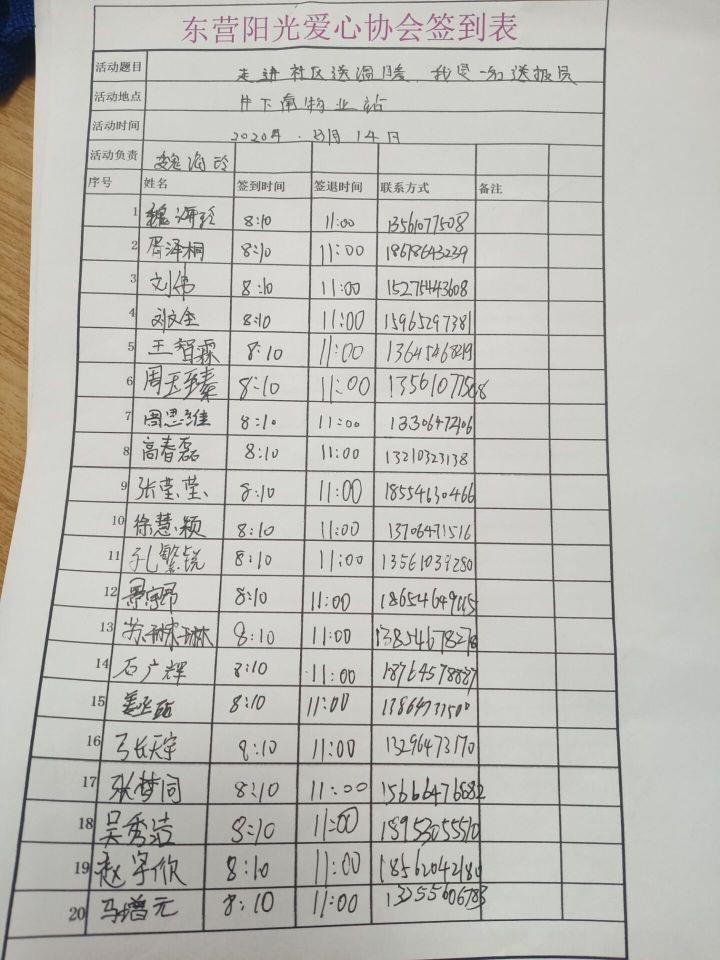 东营阳光爱心协会签到表
活动题目 走进社区送温暖，我是一名送报员
活动地点 井下南物业站
活动时间 2020年.8月14日
活动负责 魏海玲
序号 姓名 签到时间 签退时间 联系方式 备注
1 魏海玲 8:10 11:00 13561077508
2 周泽桐 8:10 11:00 18678643239
3 刘伟 8:10 11:00 15275443608
4 刘文全 8:10 11:00 15965297381
5 王智霖 8:10 11:00
6 周玉臻 8:10 11:00 13561077508
7 周思维 8:10 11:00 13306472106
8 高春磊 8:10 11:00 13210323138
9 张莹莹 8:10 11:00 18554630466
10 徐慧颖 8:10 11:00 13706471516
11 孔繁锐 8:10 11:00 13561039280
12 8:10 11:00
13 苏琳琳 8:10 11:00
14 石广辉 8:10 11:00 18764578887
15 8:10 11:00
16 张天宇 8:10 11:00 13296473170
17 张梦同 8:10 11:00 15666476682
18 吴秀洁 8:10 11:00 18953055510
19 赵宇欣 8:10 11:00 18562042180
20 马增元 8:10 11:00